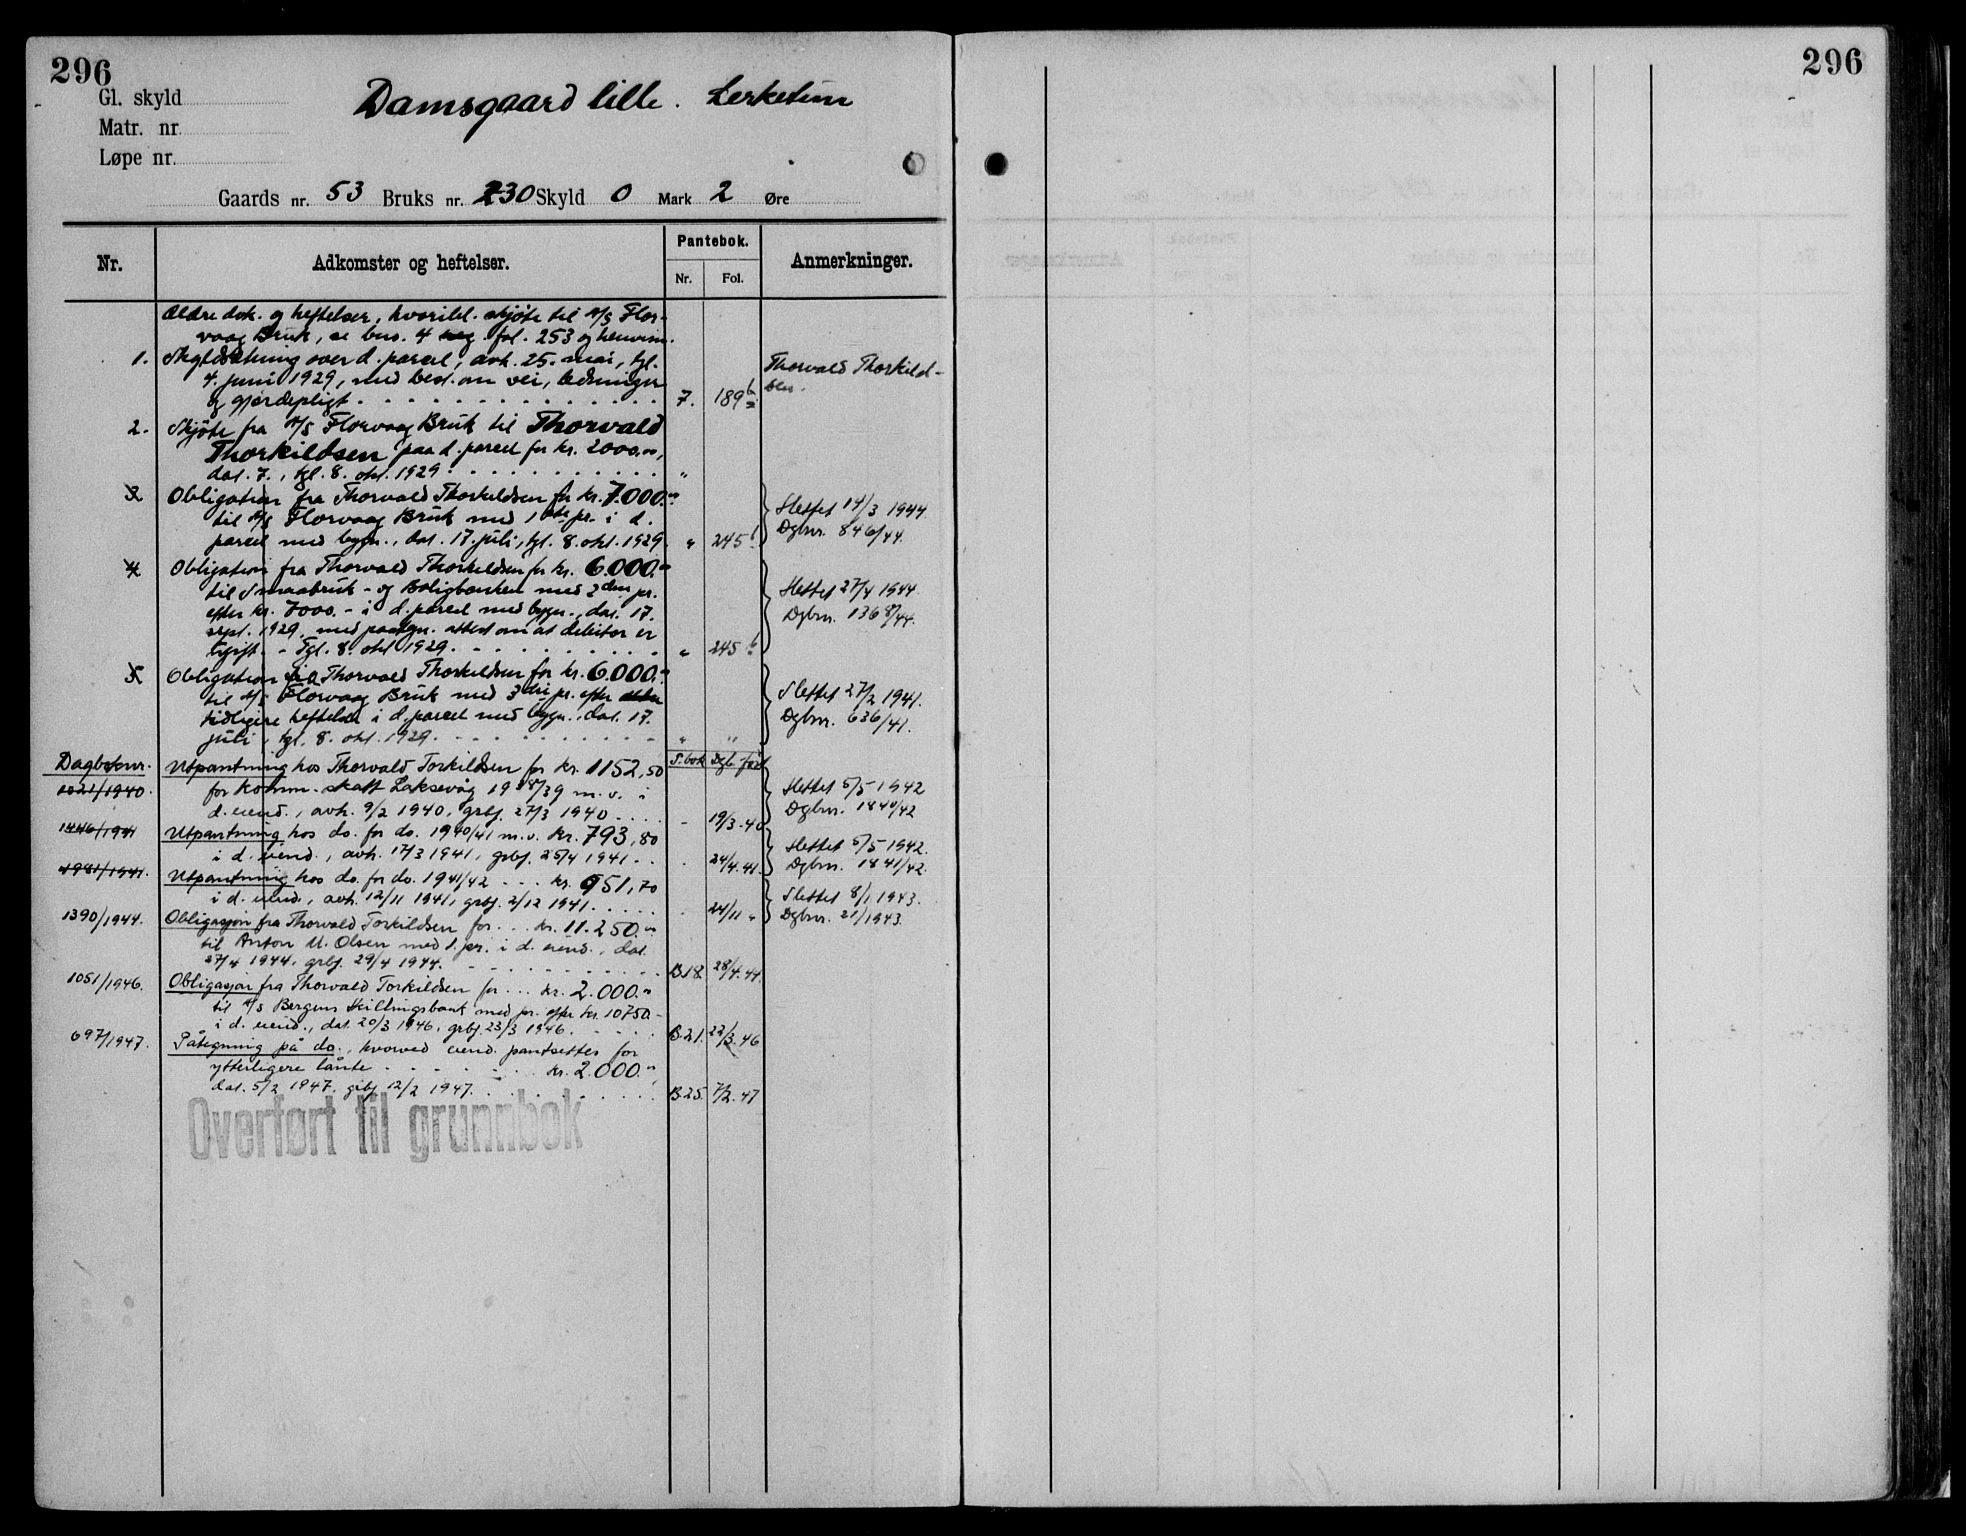 296
Gl. skyld
Matr. nr.
Løpe nr.
Damsgaard lille. Lerketun
Gaards nr. 53 Bruks nr. 230 Skyld 0 Mark 2 Øre
Nr. Adkomster og heftelser. Pantebok. Nr. Fol. Anmerkninger.
Ældre dok. og heftelser, hvoribl. skjøte til A/S Flor-
vaag Bruk, se bns. 4 fol. 253 og henvisn.
1. Skyldskiftning over d. parcel, avh. 25. mai, tgl.
4. juni 1929, med best. om vei, ledninger
og gjerdepligt 7. 189 b
Thorvald Thorkild-
sen.
2. Skjøte fra A/S Florvaag Bruk til Thorvald
Thorkildsen paa d. parcel for kr. 2000.00,
dat. 7., tgl. 8. okt. 1929 "
3. Obligation fra Thorvald Thorkildsen for kr. 7.000.00
til A/S Florvaag Bruk med 1ste pr. i d.
parcel med bygn., dat. 17. juli, tgl. 8. okt. 1929. " 245 b
Slettet 14/3 1944.
Dgbnr. 846/44.
4. Obligation fra Thorvald Thorkildsen for kr. 6.000.00
til Smaabruk- og Boligbanken med 2den pr.
efter kr. 7000.- i d. parcel med bygn., dat. 17.
sept. 1929, med paategn. attest om at debitor er
ugift. - Tgl. 8. okt 1929. " 245 b
Slettet 27/4 1944.
Dgbnr. 1368/44.
5. Obligation fra Thorvald Thorkildsen for kr. 6.000.00
til A/S Florvaag Bruk med 3die pr. efter
tidligere heftelser i d. parcel med bygn., dat. 17.
juli, tgl. 8. okt. 1929. " "
Slettet 27/2 1941.
Dgbnr. 636/41.
Dagboknr. P. bok Dgb. ført
1021/1940. Utpantning hos Thorvald Torkildsen for kr. 1152,50
for komm. skatt Laksevåg 1938/39 m.v. i
d. eiend., avh. 9/2 1940, grbf. 27/3 1940 - 19/3.40
Slettet 5/5 1942
Dgbnr. 1840/42
1446/1941 Utpantning hos do. for do. 1940/41 m.v. kr. 793,80
i d. eiend., avh. 17/3 1941, grbf. 25/4 1941 - 24/4.41.
Slettet 5/5 1942.
Dgbnr. 1841/42.
4981/1941. Utpantning hos do. for do. 1941/42 kr. 951,70
i d. eiend., avh. 12/11 1941, grbf. 2/12 1941. - 24/11 "
Slettet 8/1 1943.
Dgbnr. 21/1943.
1390/1944. Obligasjon fra Thorvald Torkildsen for kr. 11.250.00
til Anton M. Olsen med 1. pr. i d. eiend., dat.
27/4 1944, grbf. 29/4 1944. B18. 28/4.44.
1051/1946. Obligasjon fra Thorvald Torkildsen for kr. 2.000.00
til A/S Bergens Skillingsbank med pr. efter kr. 10750.-
i d. eiend., dat. 20/3 1946, grbf. 23/3 1946. B21. 22/3.46
697/1947. Påtegning på do., hvorved eiend. pantsettes for
ytterligere lånte kr. 2.000.00,
dat. 5/2 1947, grbf 12/2 1947. B25. 7/2.47
Overført til grunnbok
296